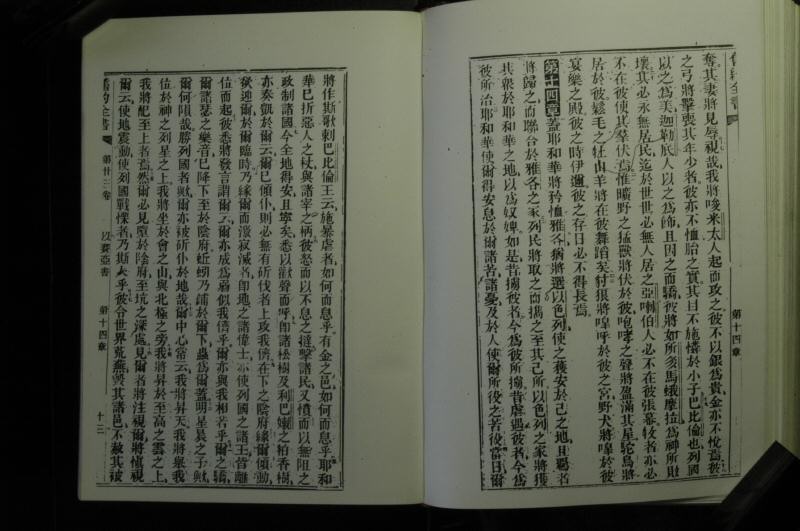 舊約全書
第十四章
奪其妻將見辱視哉我將唆米太人起而攻之彼不以銀爲貴金亦不悅焉彼
之弓將擊喪其年少者彼亦不恤胎之實其目不施憐於小子巴比倫也列國
以之爲美迦勒底人以之爲飾且因之而驕彼將如所多馬蛾摩拉爲神所敗
壞其必永無居民迄於世世必無人居之亞喇伯人必不在彼張幕牧者亦必
不在彼使其羣伏焉惟曠野之猛獸將伏於彼咆哮之聲將盈滿其屋鴕鳥將
居於彼鬆毛之牡山羊將在彼舞蹈矣豺狼將嘷呼於彼之宮野犬將嘷於彼
宴樂之殿彼之時伊邇彼之存日必不得長焉
第十四章蓋耶和華將矜恤雅各猶將選以色列使之獲安於己之地且羈者
將歸之而聯合於雅各之家列民將取之而攜之至其己所以色列之家將獲
其衆於耶和華之地以爲奴婢如是昔擄彼者今爲彼所擄昔虐遇彼者今爲
彼所治耶和華使爾得安息於爾諸苦諸憂及於人使爾所役之苦役當日爾
將作斯歌刺巴比倫王云施暴虐者如何而息乎有金之邑如何而息乎耶和
華已折惡人之杖與諸宰之柄彼怒而以不息之撻擊諸民又憤而以無阻之
政制諸國今全地得安且寧矣悉以歡聲而呼卽諸松樹及利巴嫩之栢香樹
亦奏凱於爾云爾已傾仆則必無有斫伐者上攻我儕在下之陰府緣爾傾動
欲迎爾於爾臨時乃緣爾而激寂滅者卽地之諸偉士亦使列國之諸王皆離
位而起彼悉將發言謂爾云爾亦成爲弱似我儕乎爾亦與我相若乎爾之驕
爾諸瑟之樂音已降下至於陰府蚯蚓乃鋪於爾下蟲爲爾蓋明星晨之子歟
爾何隕哉勝列國者歟爾亦被斫仆於地哉爾中心常云我將昇天我將舉我
位於神之列星之上我將坐於會之山與北極之旁我將昇於至高之雲之上
我將配至上者焉然爾必見墮於陰府至坑之深處見爾者將注視爾將愼視
爾云使地震動使列國戰慄者乃斯人乎彼令世界荒蕪毀其諸邑不赦其被
舊約全書
第廿三卷
以賽亞書
第十四章
十三